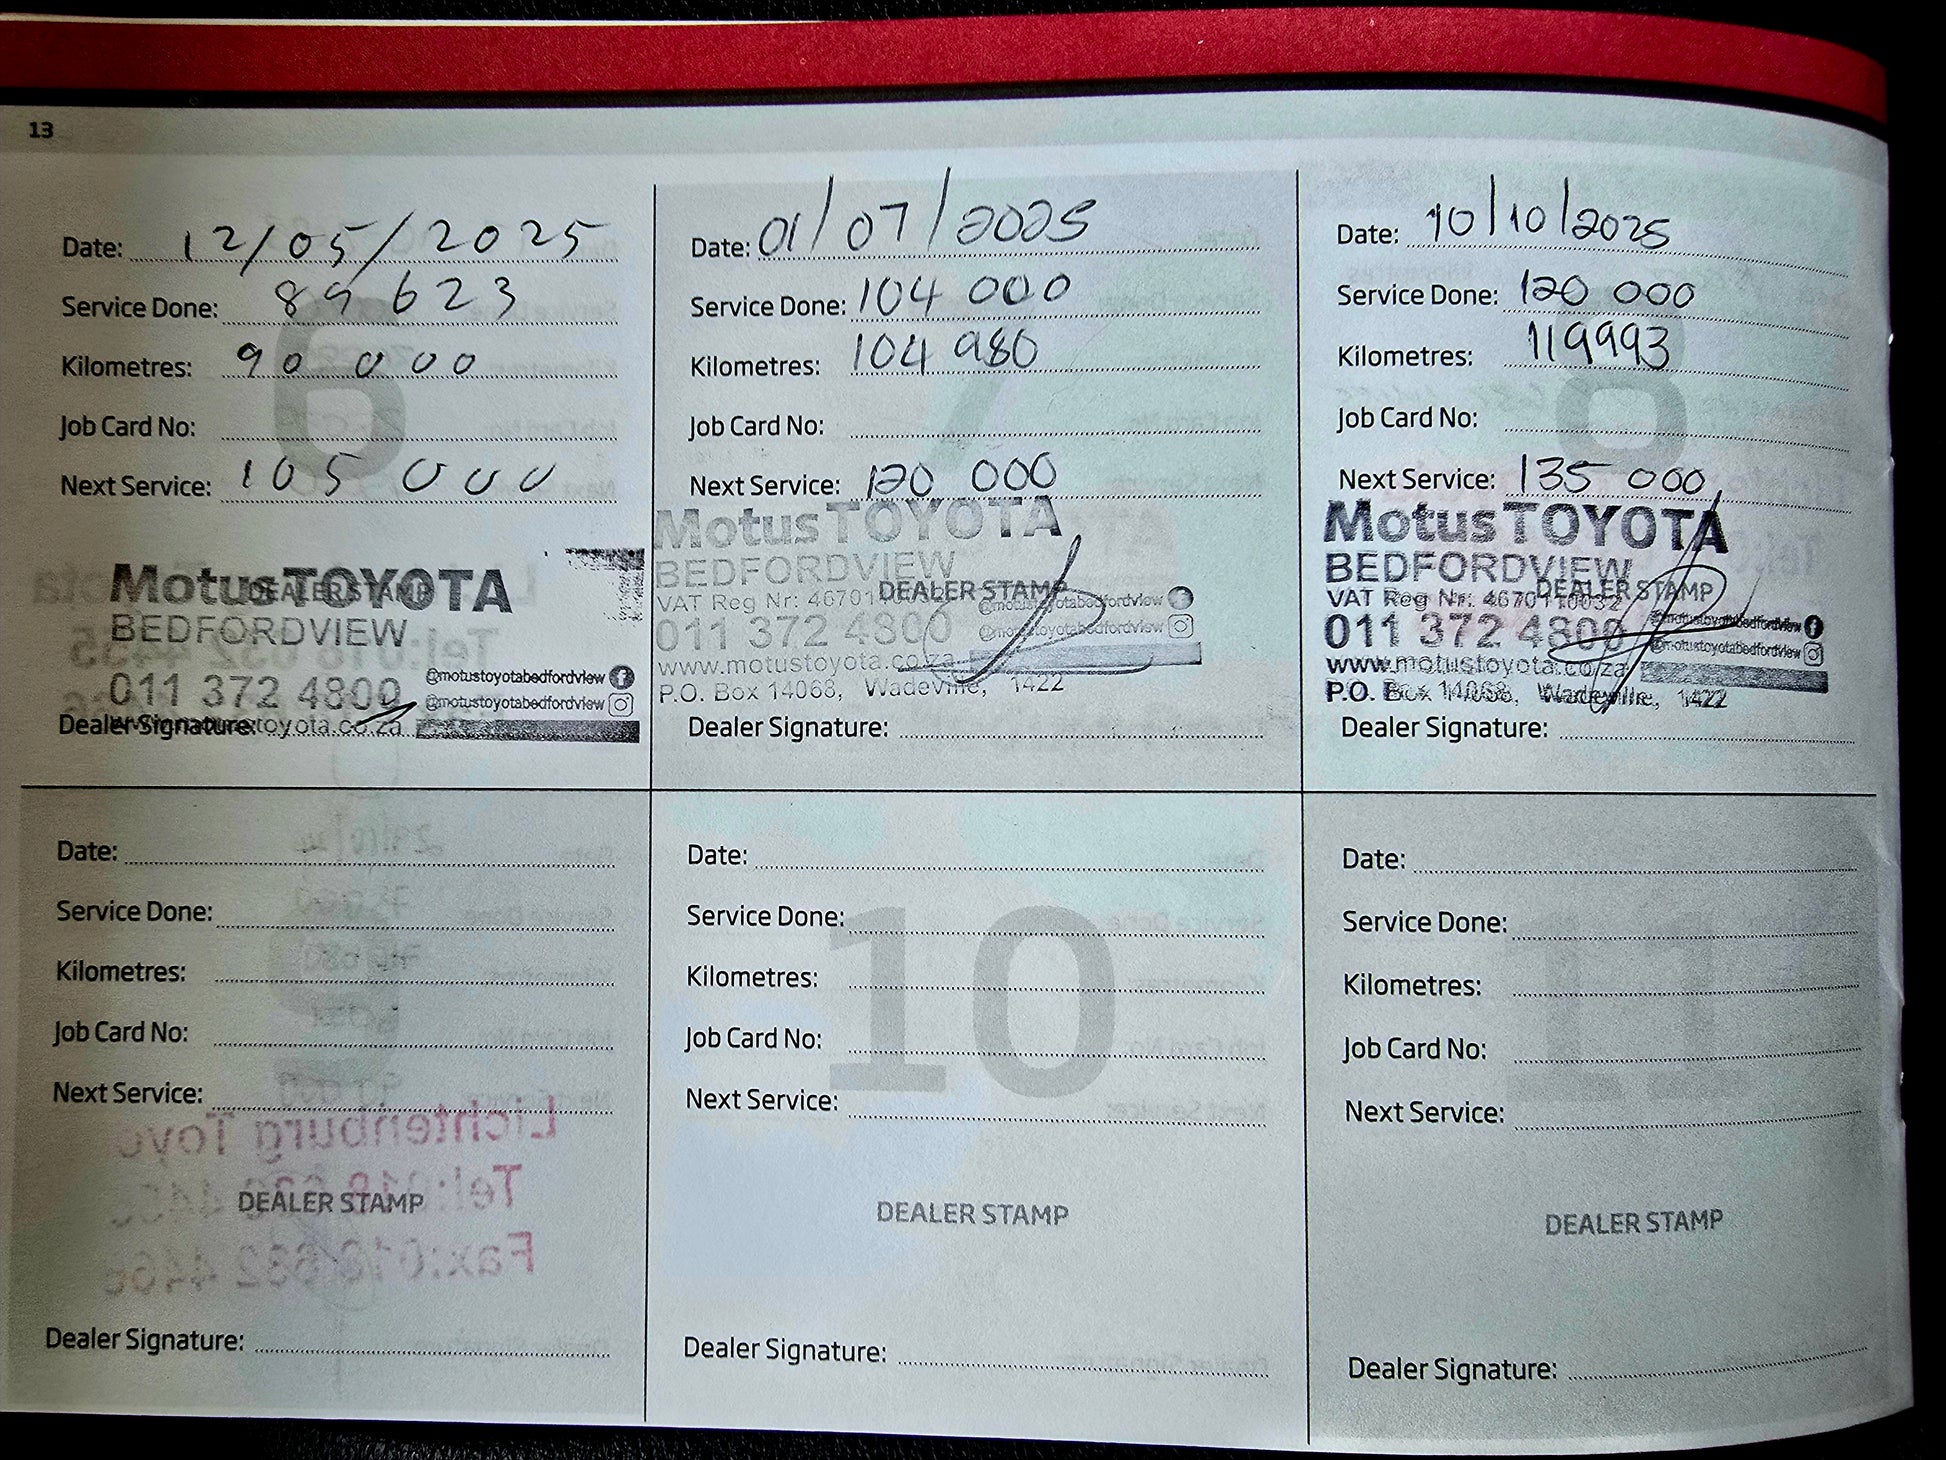 13
Date: 12/05/2025
Service Done: 89 623
Kilometres: 90 000
Job Card No:
Next Service: 105 000
DEALER STAMP
Motus TOYOTA
BEDFORDVIEW
@motustoyotabedfordview
011 372 4800
@motustoyotabedfordview
www.motustoyota.co.za
Dealer Signature:
Date: 01/07/2025
Service Done: 104 000
Kilometres: 104 980
Job Card No:
Next Service: 120 000
Motus TOYOTA
BEDFORDVIEW
DEALER STAMP
VAT Reg Nr: 46701
@motustoyotabedfordview
011 372 4800
@motustoyotabedfordview
www.motustoyota.co.za
P.O. Box 14068, Wadeville, 1422
Dealer Signature:
Date: 10/10/2025
Service Done: 120 000
Kilometres: 119993
Job Card No:
Next Service: 135 000
Motus TOYOTA
BEDFORDVIEW
DEALER STAMP
VAT Reg Nr: 4670110032
@motustoyotabedfordview
011 372 4800
@motustoyotabedfordview
www.motustoyota.co.za
P.O. Box 14068, Wadeville, 1422
Dealer Signature:
6
7
8
Date:
Service Done:
Kilometres:
Job Card No:
Next Service:
DEALER STAMP
Dealer Signature:
Date:
Service Done:
Kilometres:
Job Card No:
Next Service:
10
DEALER STAMP
Dealer Signature:
Date:
Service Done:
Kilometres:
Job Card No:
Next Service:
11
DEALER STAMP
Dealer Signature: